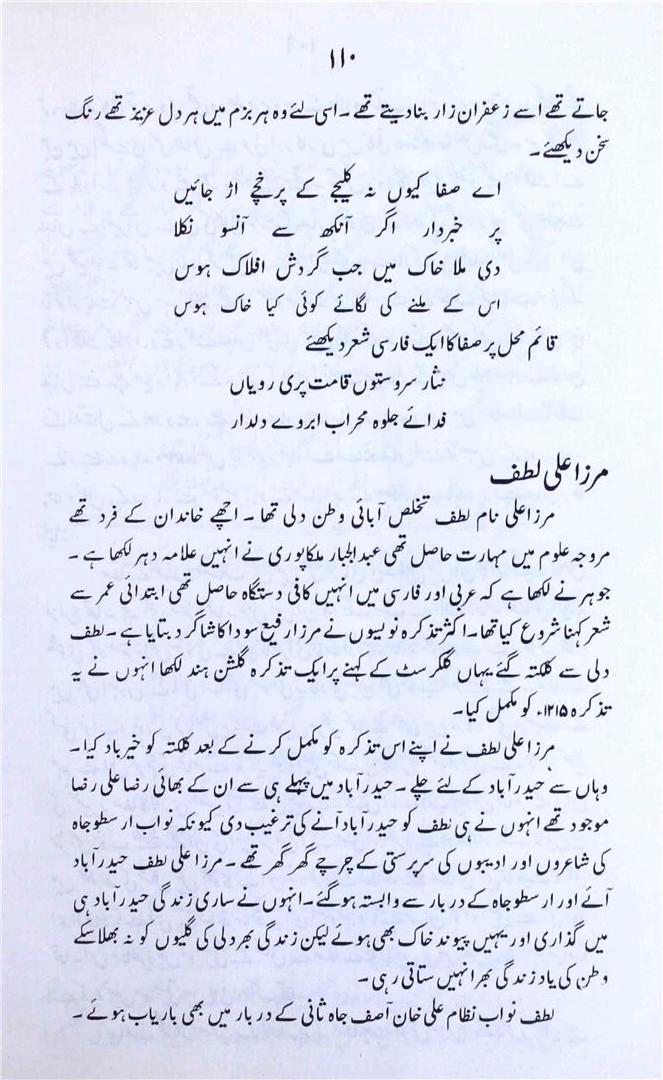 ۱۱۰
جاتے تھے اسے زعفران زار بنا دیتے تھے ۔ اسی لئے وہ ہر بزم میں ہر دل عزیز تھے رنگ
سخن دیکھئے ۔
اے صفا کیوں نہ کلیجے کے پرخچے اڑ جائیں
پر خبردار اگر آنکھ سے آنسو نکلا
دی ملا خاک میں جب گردش افلاک ہوس
اس کے ملنے کی لگائے کوئی کیا خاک ہوس
قائم محل پر صفا کا ایک فارسی شعر دیکھئے
نثار سروستوں قامت پری رویاں
فدائے جلوہ محراب ابروے دلدار
مرزا علی لطف
مرزا علی نام لطف تخلص آبائی وطن دلی تھا ۔ اچھے خاندان کے فرد تھے
مروجہ علوم میں مہارت حاصل تھی عبدالجبار ملکاپوری نے انہیں علامہ دہر لکھا ہے ۔
جوہر نے لکھا ہے کہ عربی اور فارسی میں انہیں کافی دستگاہ حاصل تھی ابتدائی عمر سے
شعر کہنا شروع کیا تھا۔ اکثر تذکرہ نویسوں نے مرزا رفیع سودا کا شاگرد بتایا ہے ۔ لطف
دلی سے کلکتہ گئے یہاں گلکرسٹ کے کہنے پر ایک تذکرہ گلشن ہند لکھا انہوں نے یہ
تذکرہ ۱۲۱۵ء کو مکمل کیا۔
مرزا علی لطف نے اپنے اس تذکرہ کو مکمل کرنے کے بعد کلکتہ کو خیر باد کیا۔
وہاں سے حیدرآباد کے لئے چلے ۔ حیدرآباد میں پہلے ہی سے ان کے بھائی رضا علی رضا
موجود تھے انہوں نے ہی لطف کو حیدرآباد آنے کی ترغیب دی کیونکہ نواب ارسطو جاہ
کی شاعروں اور ادیبوں کی سرپرستی کے چرچے گھر گھر تھے ۔ مرزا علی لطف حیدرآباد
آئے اور ارسطو جاہ کے دربار سے وابستہ ہو گئے ۔ انہوں نے ساری زندگی حیدرآباد ہی
میں گذاری اور یہیں پیوند خاک بھی ہوئے لیکن زندگی بھر دلی کی گلیوں کو نہ بھلا سکے
وطن کی یاد زندگی بھر انہیں ستاتی رہی ۔
لطف نواب نظام علی خان آصف جاہ ثانی کے دربار میں بھی باریاب ہوئے ۔